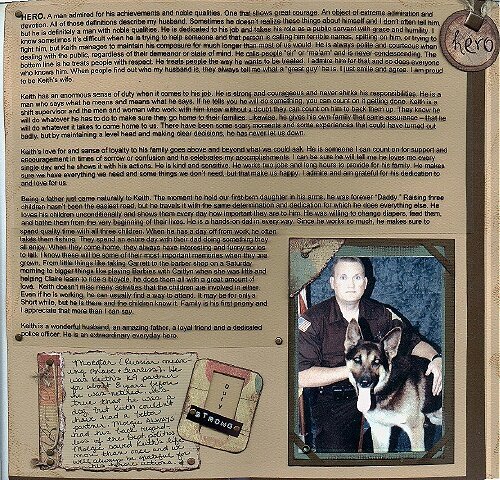 HERO. A man admired for his achievements and noble qualities. One that shows great courage. An object of extreme admiration and
devotion. All of those definitions describe my husband. Sometimes he doesn't realize these things about himself and I don't often tell him,
but he is definitely a man with noble qualities. He is dedicated to his job and takes his role as a public servant with grace and humility. I
know sometimes it's difficult when he is trying to help someone and that person is calling him terrible names, spitting on him, or trying to
fight him, but Keith manages to maintain his composure much longer than most of us would. He is always polite and courteous when
dealing with the public, regardless of their demeanor or state of mind. He calls people "sir" or "ma'am" and is never condescending. The
bottom line is he treats people with respect. He treats people the way he wants to be treated. I admire him for that and so does everyone
who knows him. When people find out who my husband is, they always tell me what a "great guy" he is. I just smile and agree. I am proud
to be Keith's wife.
Keith has an enormous sense of duty when it comes to his job. He is strong and courageous and never shirks his responsibilities. He is a
man who says what he means and means what he says. If he tells you he will do something, you can count on it getting done. Keith is a
shift supervisor and the men and women who work with him know without a doubt they can count on him to back them up. They know he
will do whatever he has to do to make sure they go home to their families. Likewise, he gives his own family that same assurance – that he
will do whatever it takes to come home to us. There have been some scary moments and some experiences that could have turned out
badly, but by maintaining a level head and making clear decisions, he has never let us down.
Keith's love for and sense of loyalty to his family goes above and beyond what we could ask. He is someone I can count on for support and
encouragement in times of sorrow or confusion and he celebrates my accomplishments. I can be sure he will tell me he loves me every
single day and he shows it with his actions. He is kind and sensitive. He works hard and long hours to provide for his family. He makes
sure we have everything we need and some things we don't need, but that make us happy. I admire and am grateful for his dedication to
and love for us.
Being a father just came naturally to Keith. The moment he held our first-born daughter in his arms, he was forever "Daddy." Raising three
children hasn't been the easiest road, but he travels it with the same determination and dedication for which he does everything else. He
loves his children unconditionally and shows them every day how important they are to him. He was willing to change diapers, feed them,
and bathe them from the very beginning of their lives. He is a hands-on dad in every way. Since he works so much, he makes sure to
spend quality time with all three children. When he has a day off from work he often
takes them fishing. They spend an entire day with their dad doing something they
all enjoy. When they come home, they always have interesting and funny stories
to tell. I know these will be some of their most important memories when they are
grown. From little things like taking Garret to the barber shop on a Saturday
morning to bigger things like playing Barbies with Caitlyn when she was little and
helping Claire learn to ride a bicycle, he does them all with a great amount of
love. Keith doesn't miss many activities that the children are involved in either.
Even if he is working, he can usually find a way to attend. It may be for only a
short while, but he is there and the children know it. Family is his first priority and
I appreciate that more than I can say.
Keith is a wonderful husband, an amazing father, a loyal friend and a dedicated
police officer. He is an extraordinary everyday hero.
hero
(Russian mean
ing brave & fearless). He
was Keith's K9 partner
for about 8 years before
he was retired. It's
true that he was a
dog, but Keith couldn't
have had a better
partner. always
had his back regard
less of the
saved Keith's life
more than once and I
will always be grateful for
his heroic actions.
Duty
STRONG